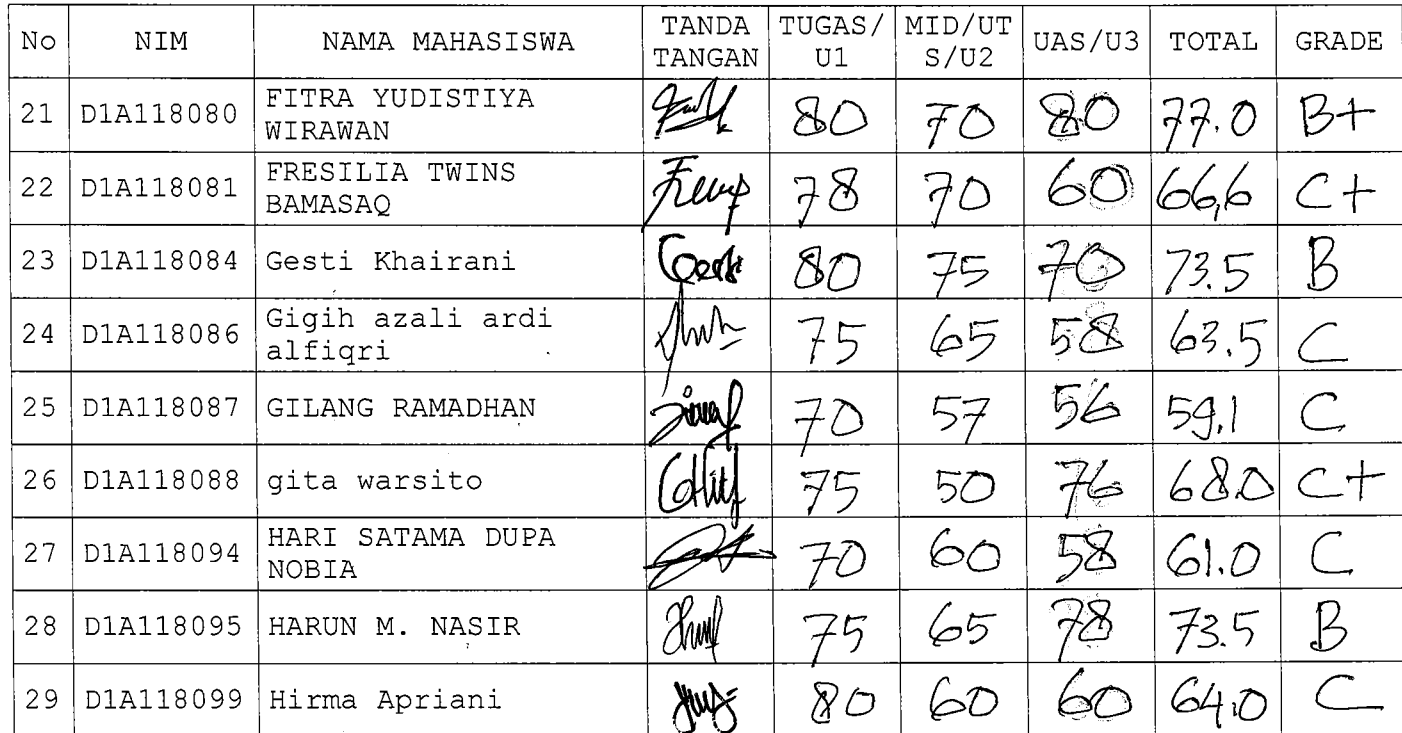 No NIM NAMA MAHASISWA TANDA TANGAN TUGAS/U1 MID/UTS/U2 UAS/U3 TOTAL GRADE
21 D1A118080 FITRA YUDISTIYA WIRAWAN 80 70 80 77.0 B+
22 D1A118081 FRESILIA TWINS BAMASAQ 78 70 60 66,6 C+
23 D1A118084 Gesti Khairani 80 75 70 73.5 B
24 D1A118086 Gigih azali ardi alfiqri 75 65 58 63.5 C
25 D1A118087 GILANG RAMADHAN 70 57 56 59,1 C
26 D1A118088 gita warsito 75 50 76 68.0 C+
27 D1A118094 HARI SATAMA DUPA NOBIA 70 60 58 61.0 C
28 D1A118095 HARUN M. NASIR 75 65 78 73.5 B
29 D1A118099 Hirma Apriani 80 60 60 64.0 C